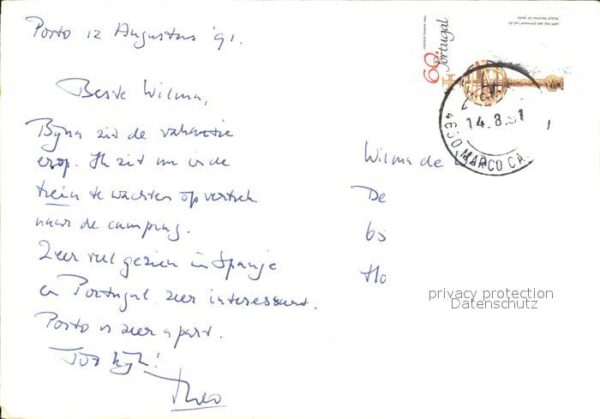 Porto 12 Augustus '91.
Beste Wilma,
Bijna zit de vakantie
erop. Ik zit nu in de
trein te wachten op vertrek
naar de camping.
Zeer veel gezien in Spanje
en Portugal, zeer interessant.
Porto is zeer apart.
Tot kijk!
Theo
60.
Portugal
14.8.91
4630 MARCO CA
Wilma de
De
Ho
privacy protection
Datenschutz